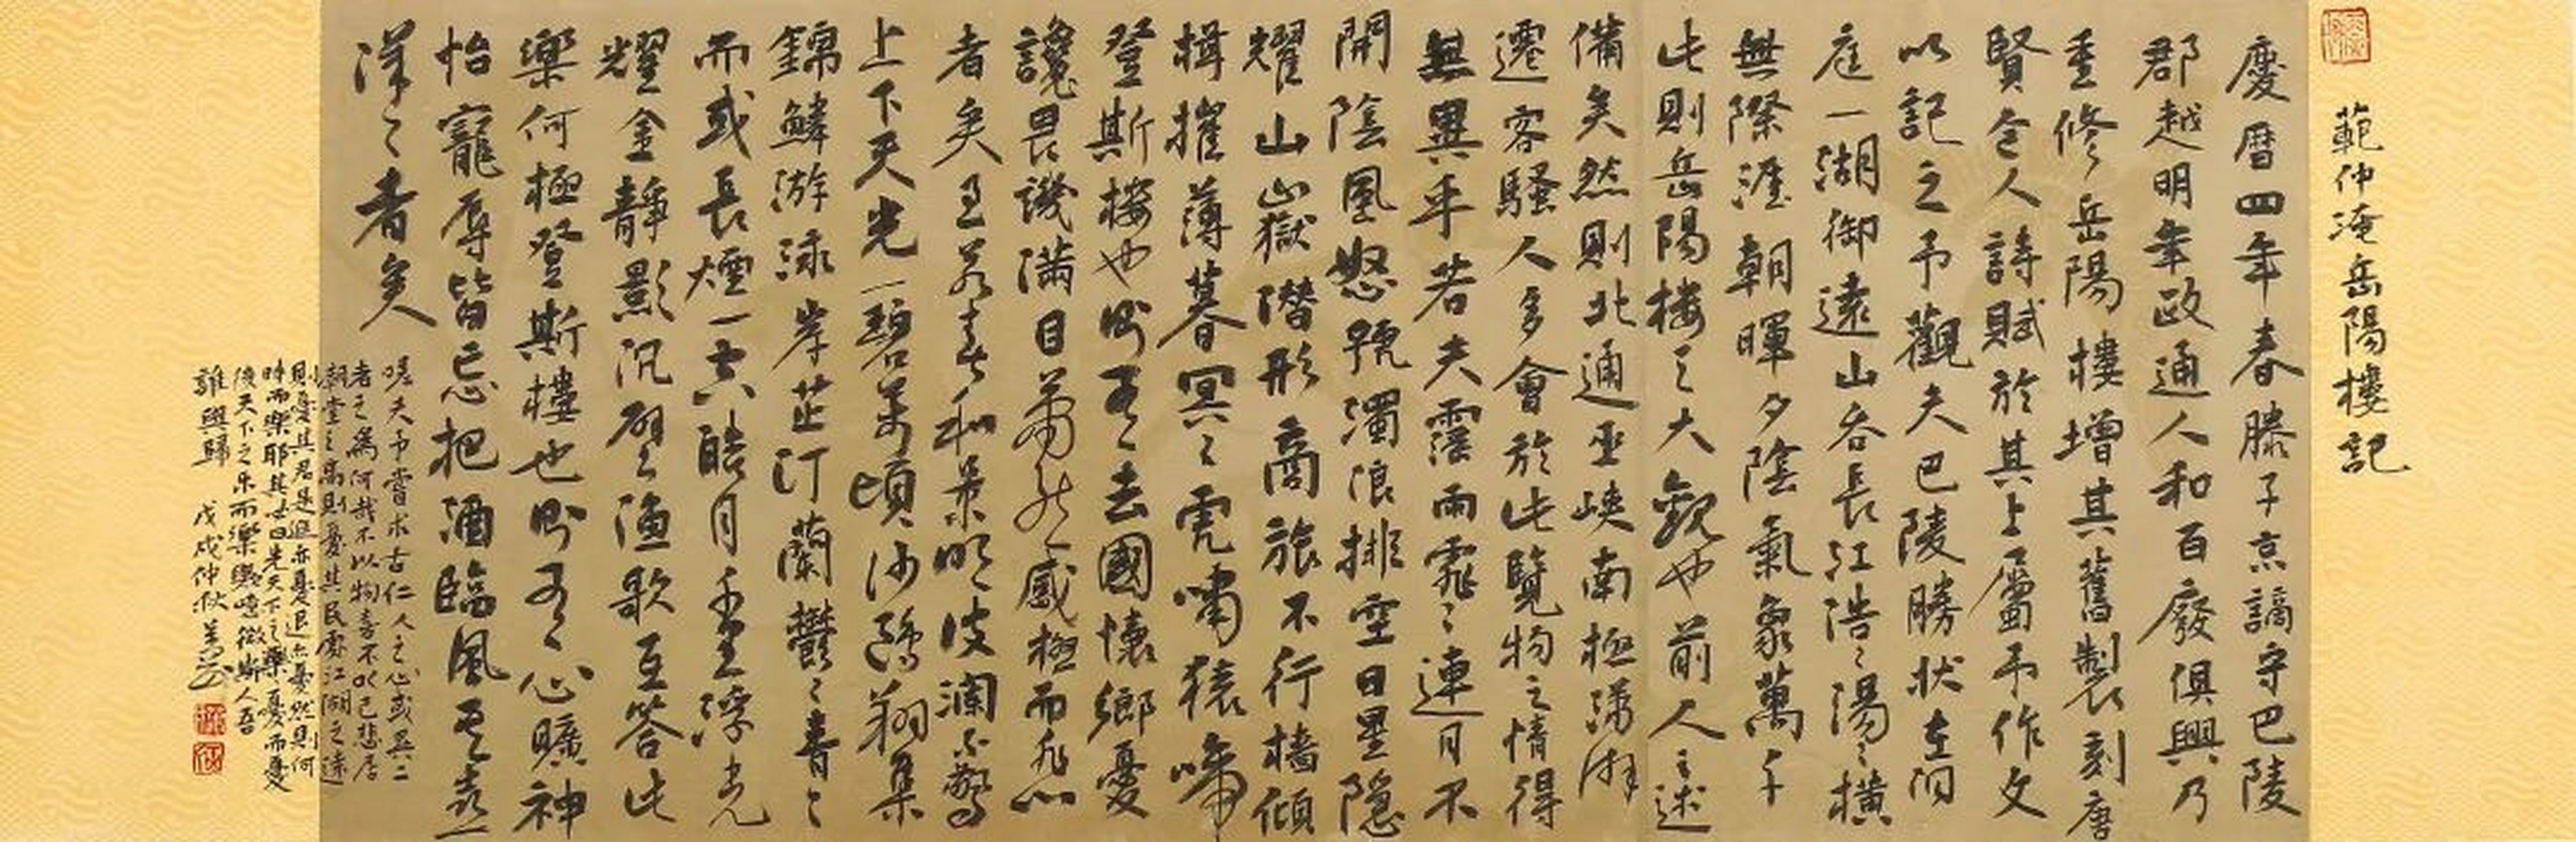 範仲淹岳陽樓記
慶曆四年春滕子京謫守巴陵
郡越明年政通人和百廢俱興乃
重修岳陽樓增其舊製刻唐
賢今人詩賦於其上屬予作文
以記之予觀夫巴陵勝狀在洞
庭一湖御遠山吞長江浩〻湯〻橫
無際涯朝暉夕陰氣象萬千
此則岳陽樓之大觀也前人之述
備矣然則北通巫峽南極瀟湘
遷客騷人多會於此覽物之情得
無異乎若夫霪雨霏〻連月不
開陰風怒號濁浪排空日星隱
耀山嶽潛形商旅不行檣傾
楫摧薄暮冥〻虎嘯猿啼
登斯樓也則有去國懷鄉憂
讒畏譏滿目蕭然感極而悲
者矣至若春和景明波瀾不驚
上下天光一碧萬頃沙鷗翔集
錦鱗游泳岸芷汀蘭鬱〻青〻
而或長煙一空皓月千里浮光
耀金靜影沉璧漁歌互答此
樂何極登斯樓也則有心曠神
怡寵辱皆忘把酒臨風其喜
洋〻者矣
嗟夫予嘗求古仁人之心或異二
者之為何哉不以物喜不以己悲居
廟堂之高則憂其民處江湖之遠
則憂其君是進亦憂退亦憂然則何
時而樂耶其必曰先天下之憂而憂
後天下之樂而樂歟噫微斯人吾
誰與歸 戊戌仲秋